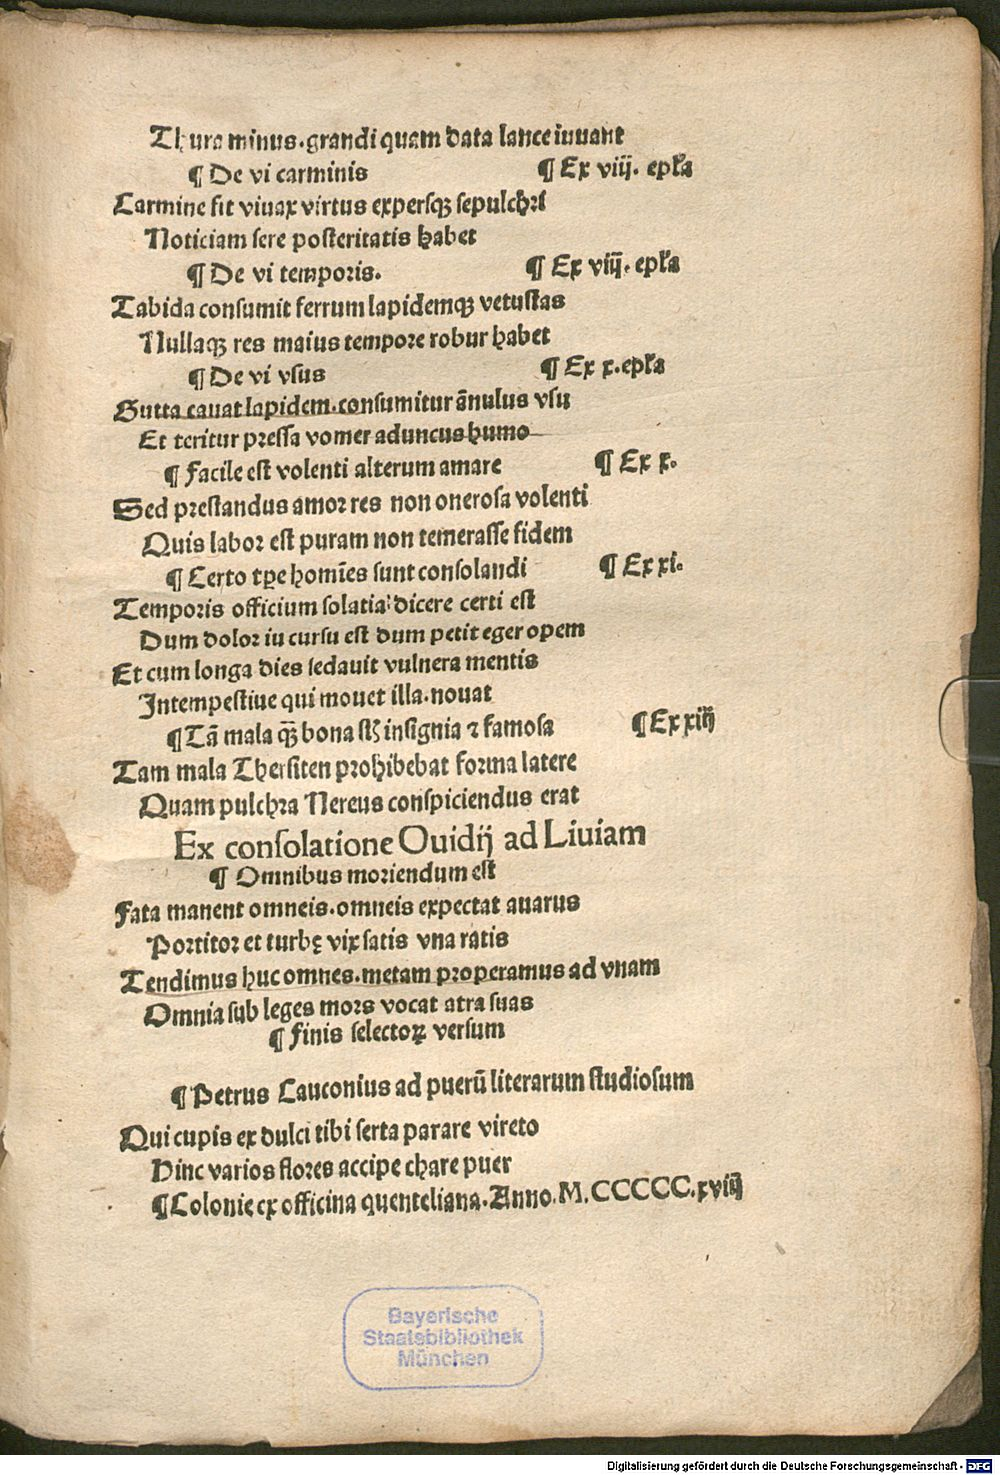 Thura minus.grandi quam data lance iuuant
¶ De vi carminis ¶ Ex viij. epl'a
Carmine fit viuax virtus expersqꝫ sepulchri
Noticiam sere posteritatis habet
¶ De vi temporis. ¶ Ex viij. epl'a
Tabida consumit ferrum lapidemqꝫ vetustas
Nullaqꝫ res maius tempore robur habet
¶ De vi vsus ¶ Ex x.epl'a
Gutta cauat lapidem.consumitur ānulus vsu
Et teritur pressa vomer aduncus humo
¶ Facile est volenti alterum amare ¶ Ex x.
Sed prestandus amor res non onerosa volenti
Quis labor est puram non temerasse fidem
¶ Certo tꝑe homīes sunt consolandi ¶ Ex xi.
Temporis officium solatia dicere certi est
Dum dolor in cursu est dum petit eger opem
Et cum longa dies sedauit vulnera mentis
Intempestiue qui mouet illa.nouat
¶ Tā mala qꝫ̄ bona sūt insignia ⁊ famosa ¶ Ex xiij
Tam mala Thersiten prohibebat forma latere
Quam pulchra Nereus conspiciendus erat
Ex consolatione Ouidij ad Liuiam
¶ Omnibus moriendum est
Fata manent omneis.omneis expectat auarus
Portitor et turbę vix satis vna ratis
Tendimus huc omnes.metam properamus ad vnam
Omnia sub leges mors vocat atra suas
¶ Finis selectoꝝ versum
¶ Petrus Cauconius ad puerū literarum studiosum
Qui cupis ex dulci tibi serta parare vireto
Hinc varios flores accipe chare puer
¶ Colonię ex officina quenteliana.Anno.M.CCCCC.xviij
Bayerische
Staatsbibliothek
München
Digitalisierung gefördert durch die Deutsche Forschungsgemeinschaft - DFG